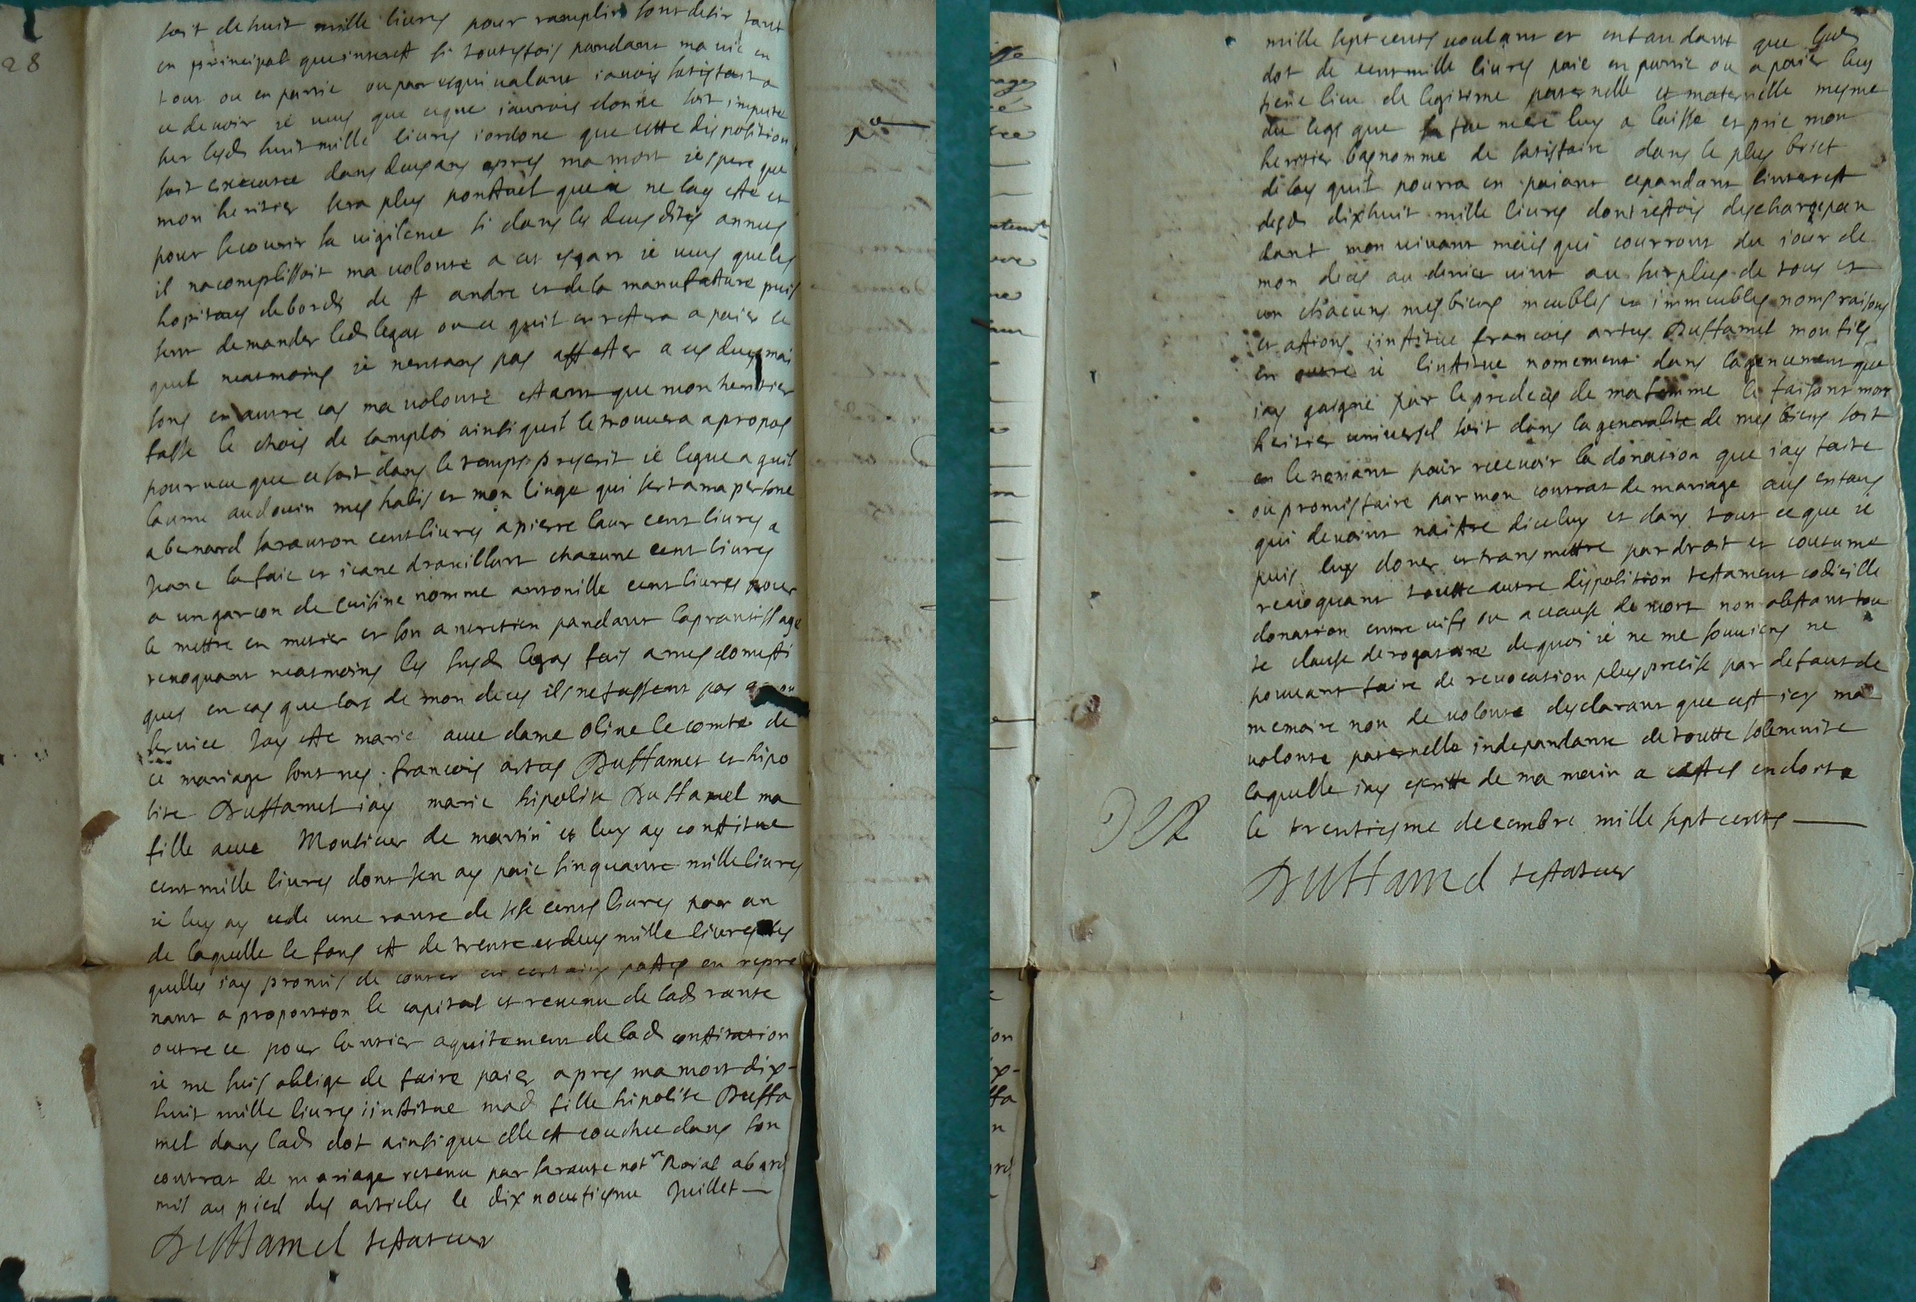 28
soit de huit mille livres pour ramplir sont desir tant
en principal que interest si toutesfois pandant ma vie en
tout ou en partie ou par esquivalant iavois satisfait a
ce devoir ie veus que ce que iaurois donné soit imputé
sur lesd huit mille livres iordone que cette disposition
soit executée dans deus ans apres ma mort iespere que
mon heritier sera plus ponctuel que ie ne lay esté et
pour secourir sa vigilance si dans les deus dites annees
il nacomplissoit ma volonté a cet esgart ie veus que les
hopitaus de bords de st andre et de la manufacture puis
sent demander led legat ou ce quil en restera a paier ce
quil neatmoins ie nentans pas affecter a ces deus mai
sons en autre cas ma volonté estant que mon heritier
fasse le chois de lamploi ainsi quil le trouvera a propos
pourveu que ce soit dans le temps prescrit ie legue a guil
laume audouin mes habis et mon linge qui sert a ma persone
a bernard saraunon cent livres a pierre laur cent livres a
Jeane lafaie et ieane drouillart chacune cent livres
a un garcon de cuisine nomme antonille cent livres pour
le mettre en metier et son antretien pandant lapprantissage
revoquant neatmoins les susd legas fais a mes domesti
ques en cas que lors de mon deces ils ne fussent pas a mon
service Jay esté marie avec dame oline le comte de
ce mariage sont nes francois artus Duhamel et hipo
lite Duhamel iay marie hipolite Duhamel ma
fille avec Monsieur de martin et luy ay constitue
cent mille livres dont ien ay paié sinquante mille livres
ie luy ay cedé une rante de sese cens livres par an
de laquelle le fons est de trente et deus mille livres les
quelles iay promis de conter en certains pactes en repre
nant a proportion le capital et revenu de lad rante
outre ce pour lantier aquitement de lad constitution
ie me suis oblige de faire paier apres ma mort dix-
huit mille livres iinstitue mad fille hipolite Duha
mel dans lad dot ainsi que elle est couchée dans son
contrat de mariage retenu par saraute notre Roial a bord
mis au pied des articles le dix nouviesme Juillet
Duhamel testateur
mille sept cents voulant et entandant que lad
dot de cent mille livres paié en partie ou a paier luy
tiene lieu de legitime paternelle et maternelle mesme
du legs que sa feu mere luy a laissé et prie mon
heritier bas nommé de satisfaire dans le plus brief
delay quil pourra en paiant cepandant linterest
desd dixhuit mille livres dont iestois deschargé pan
dant mon vivant mais qui courront du iour de
mon deces au denier vint au surplus de tous et
un chacuns mes biens meubles et immeubles noms raisons
et actions iinstitue francois artus Duhamel mon fils
en outre ie linstitue nomement dans lagencement que
iay gaigné par le predeces de ma femme le faisant mon
heritier universel soit dans la generalité de mes biens soit
en le nomant pour recevoir la donation que iay faite
ou promis faire par mon contrat de mariage aus enfans
qui devoint naitre diceluy et dans tout ce que ie
puis luy doner et transmettre par droit et coutume
revoquant toutte autre disposition testament codicille
donation entre vifs ou a cause de mort non obstant tou
te clause derogatoire de quoi ie ne me souviens ne
pouvant faire de revocation plus precise par defaut de
memoire non de volonté desclarant que cest icy ma
volonté paternelle independante de toutte solemnité
laquelle iay escritte de ma main a castes endorte
le trentiesme decembre mille sept cents
Duhamel testateur